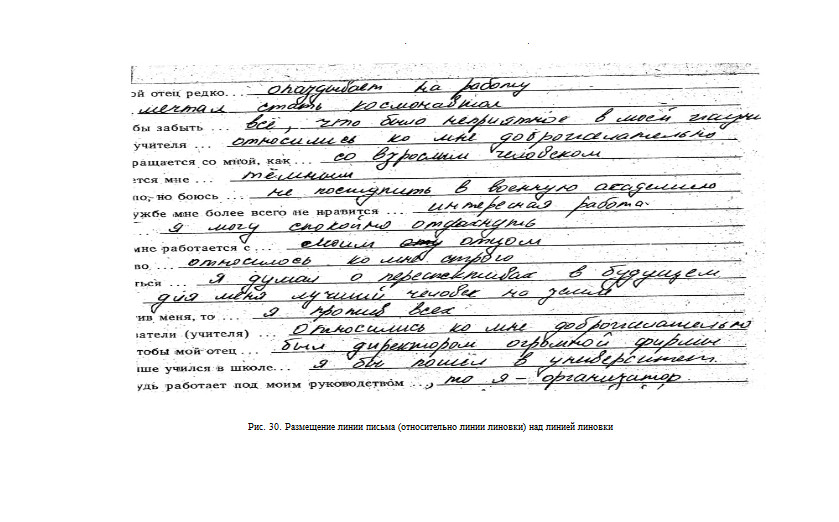 ой отец редко... опаздывает на работу
мечтал стать космонавтом
бы забыть ... всё, что было неприятное в моей жизни
учителя ... относились ко мне доброжелательно
ращается со мной, как... со взрослым человеком
ется мне ... тёмным
но, но боюсь ... не поступить в военную академию
ужбе мне более всего не нравится ... интересная работа.
... я могу спокойно отдохнуть
мне работается с ... своим отцом
во ... относилось ко мне строго
ться ... я думал о перспективах в будущем
для меня лучший человек на земле
ив меня, то ... я против всех
атели (учителя) ... относились ко мне доброжелательно
тобы мой отец ... был директором огромной фирмы
ше учился в школе... я бы пошёл в университет.
удь работает под моим руководством ..., то я – организатор.
Рис. 30. Размещение линии письма (относительно линии линовки) над линией линовки